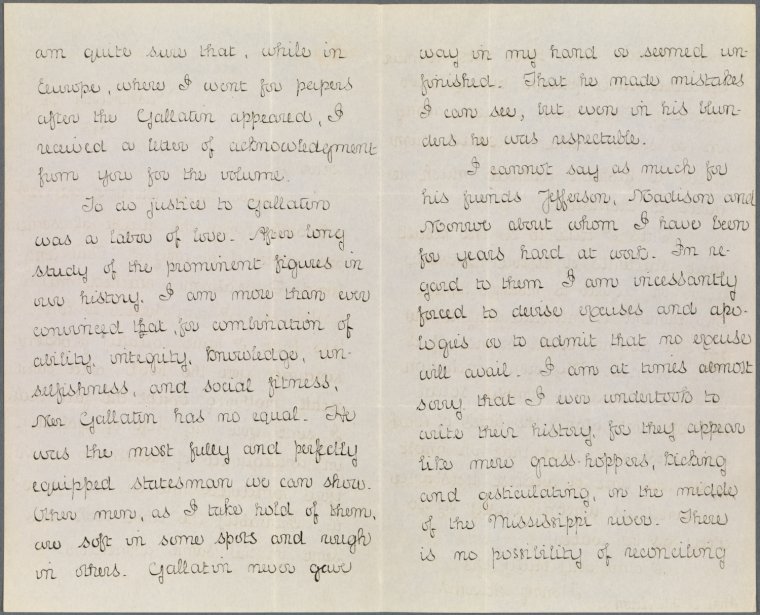 am quite sure that, while in
Europe, where I went for papers
after the Gallatin appeared, I
received a letter of acknowledgement
from you for the volume.
To do justice to Gallatin
was a labor of love. After long
study of the prominent figures in
our history, I am more than ever
convinced that, for combination of
ability, integrity, knowledge, un-
selfishness, and social fitness,
Mr Gallatin has no equal. He
was the most fully and perfectly
equipped statesman we can show.
Other men, as I take hold of them,
are soft in some spots and rough
in others. Gallatin never gave
way in my hand or seemed un-
finished. That he made mistakes
I can see, but even in his blun-
ders he was respectable.
I cannot say as much for
his friends Jefferson, Madison and
Monroe about whom I have been
for years hard at work. In re-
gard to them I am incessantly
forced to devise excuses and apo-
logies or to admit that no excuse
will avail. I am at times almost
sorry that I ever undertook to
write their history, for they appear
like mere grass-hoppers, kicking
and gesticulating, on the middle
of the Mississippi river. There
is no possibility of reconciling